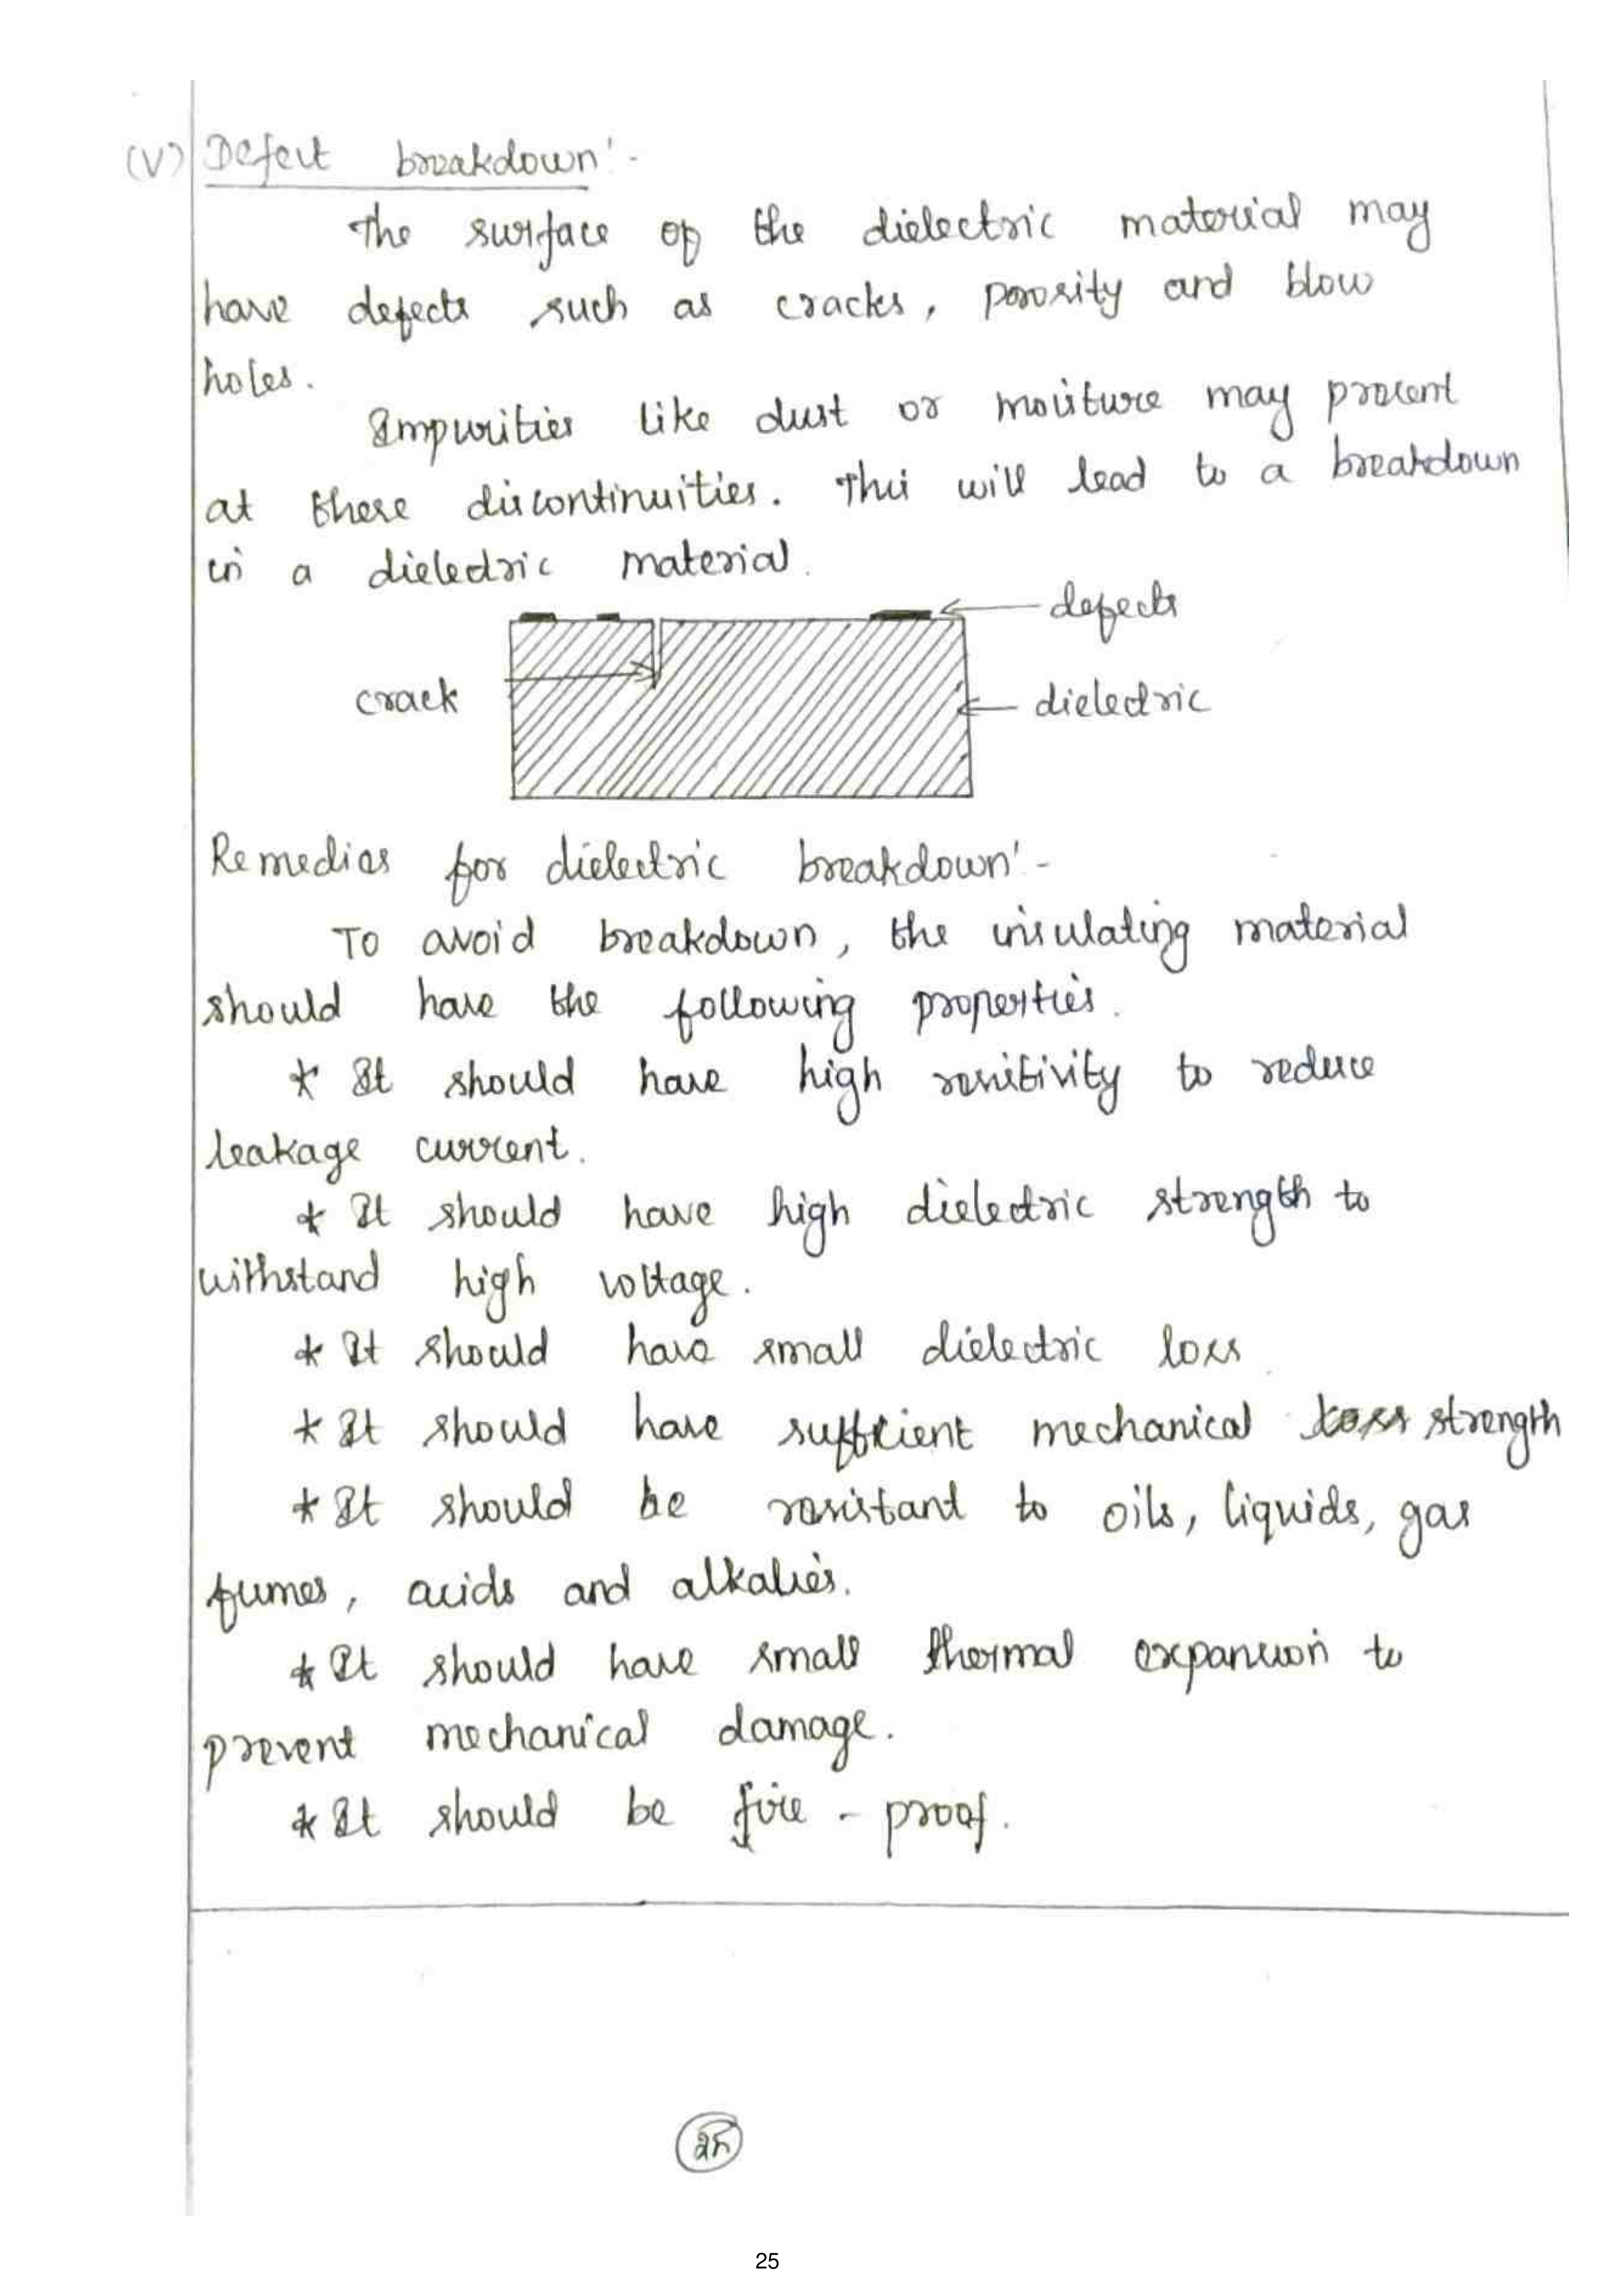 (V) Defect breakdown:-
The surface of the dielectric material may
have defects such as cracks, porosity and blow
holes.
Impurities like dust or moisture may present
at these discontinuities. This will lead to a breakdown
in a dielectric material.
defects
crack
dielectric
Remedies for dielectric breakdown:-
To avoid breakdown, the insulating material
should have the following properties.
* It should have high resistivity to reduce
leakage current.
* It should have high dielectric strength to
withstand high voltage.
* It should have small dielectric loss.
* It should have sufficient mechanical loss strength
* It should be resistant to oils, liquids, gas
fumes, acids and alkalies.
* It should have small thermal expansion to
prevent mechanical damage.
* It should be fire - proof.
25
25